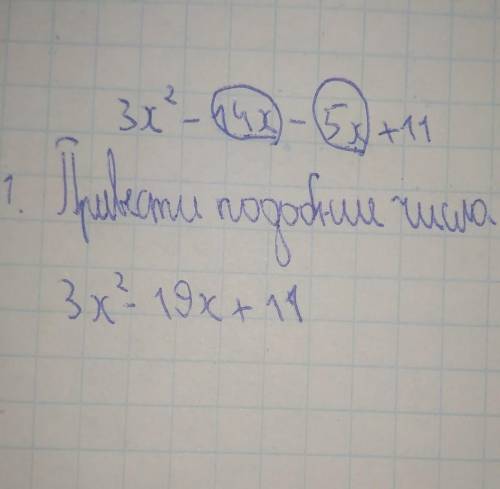 3x² - 14x - 5x + 11
1. Привести подобные числа
3x² - 19x + 11